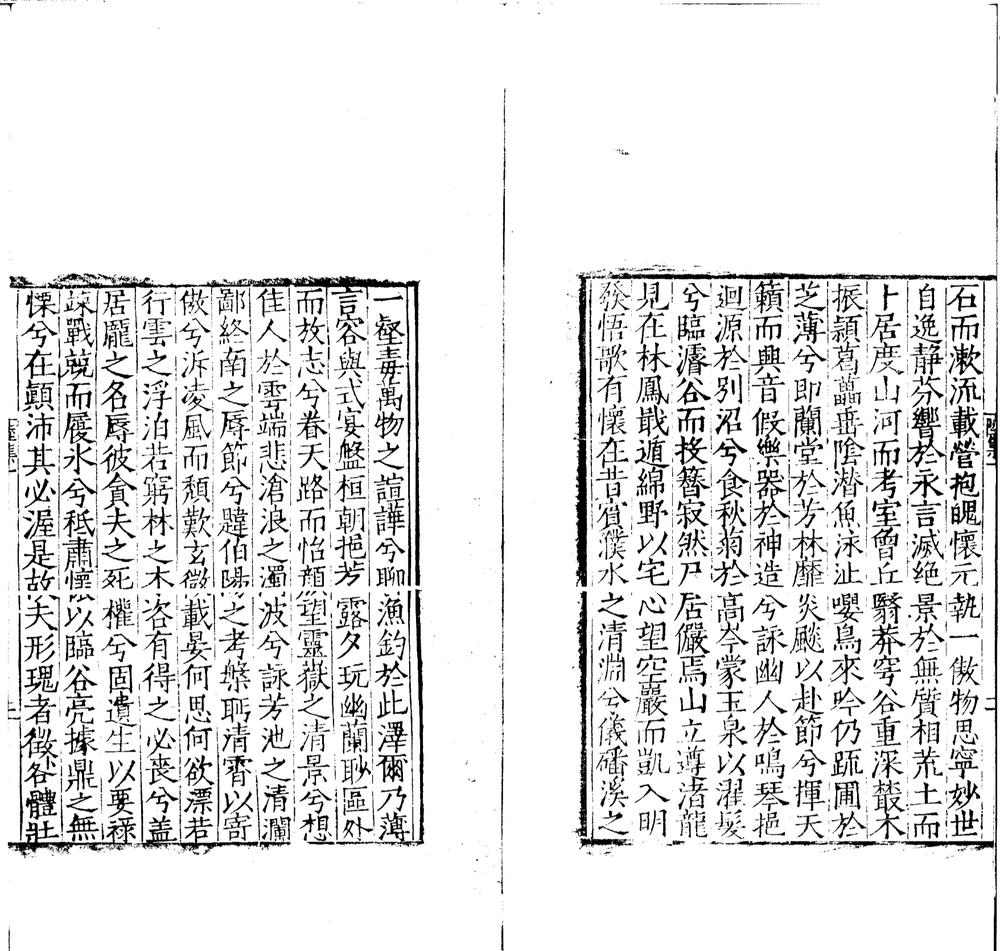 石而漱流載營抱魄懷元執一傲物思寧妙世
自逸靜芬響於永言滅絕景於無質相荒土而
卜居度山河而考室曾丘翳莽穹谷重深叢木
振頴葛藟垂陰潜魚泳沚嚶鳥來吟仍疏圃於
芝薄兮即蘭堂於芳林靡炎飈以赴節兮揮天
籟而興音假樂器於神造兮詠幽人於鳴琴挹
迴源於别沼兮食秋菊於高岑蒙玉泉以濯髮
兮臨濬谷而投簪寂然尸居儼焉山立遵渚龍
見在林鳳戢遁綿野以宅心望空巖而凱入明
發悟歌有懷在昔宿濮水之清淵兮儀磻溪之
一壑毒萬物之諠譁兮聊漁釣於此澤爾乃薄
言容與式宴盤桓朝挹芳露夕玩幽蘭眇區外
而放志兮眷天路而怡顔望靈嶽之清景兮想
佳人於雲端悲滄浪之濁波兮詠芳池之清瀾
鄙終南之辱節兮韙伯陽之考槃眄清霄以寄
傲兮泝凌風而頽歎玄微載晏何思何欲漂若
行雲之浮泊若窮林之木咨有得之必喪兮盖
居寵之名辱彼貪夫之死權兮固遺生以要禄
竦戰兢而履冰兮祗肅懷以臨谷亮據鼎之無
慄兮在顛沛其必渥是故夫形瑰者徵各體壯